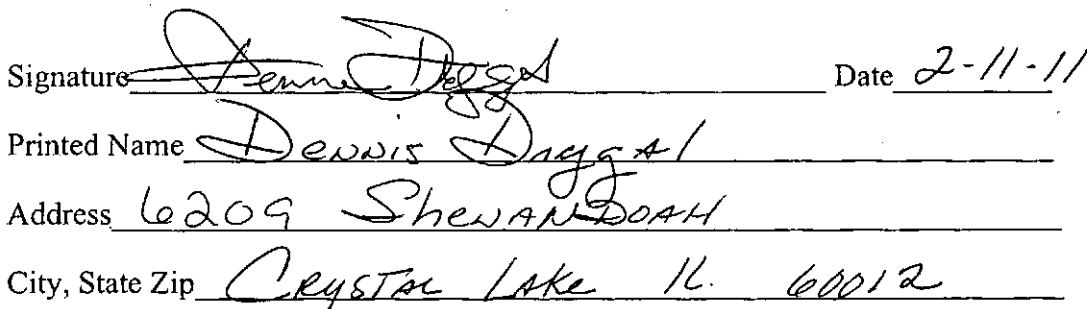 Signature Date 2-11-11
Printed Name Dennis
Address 6209 Shenandoah
City, State Zip Crystal Lake IL. 60012